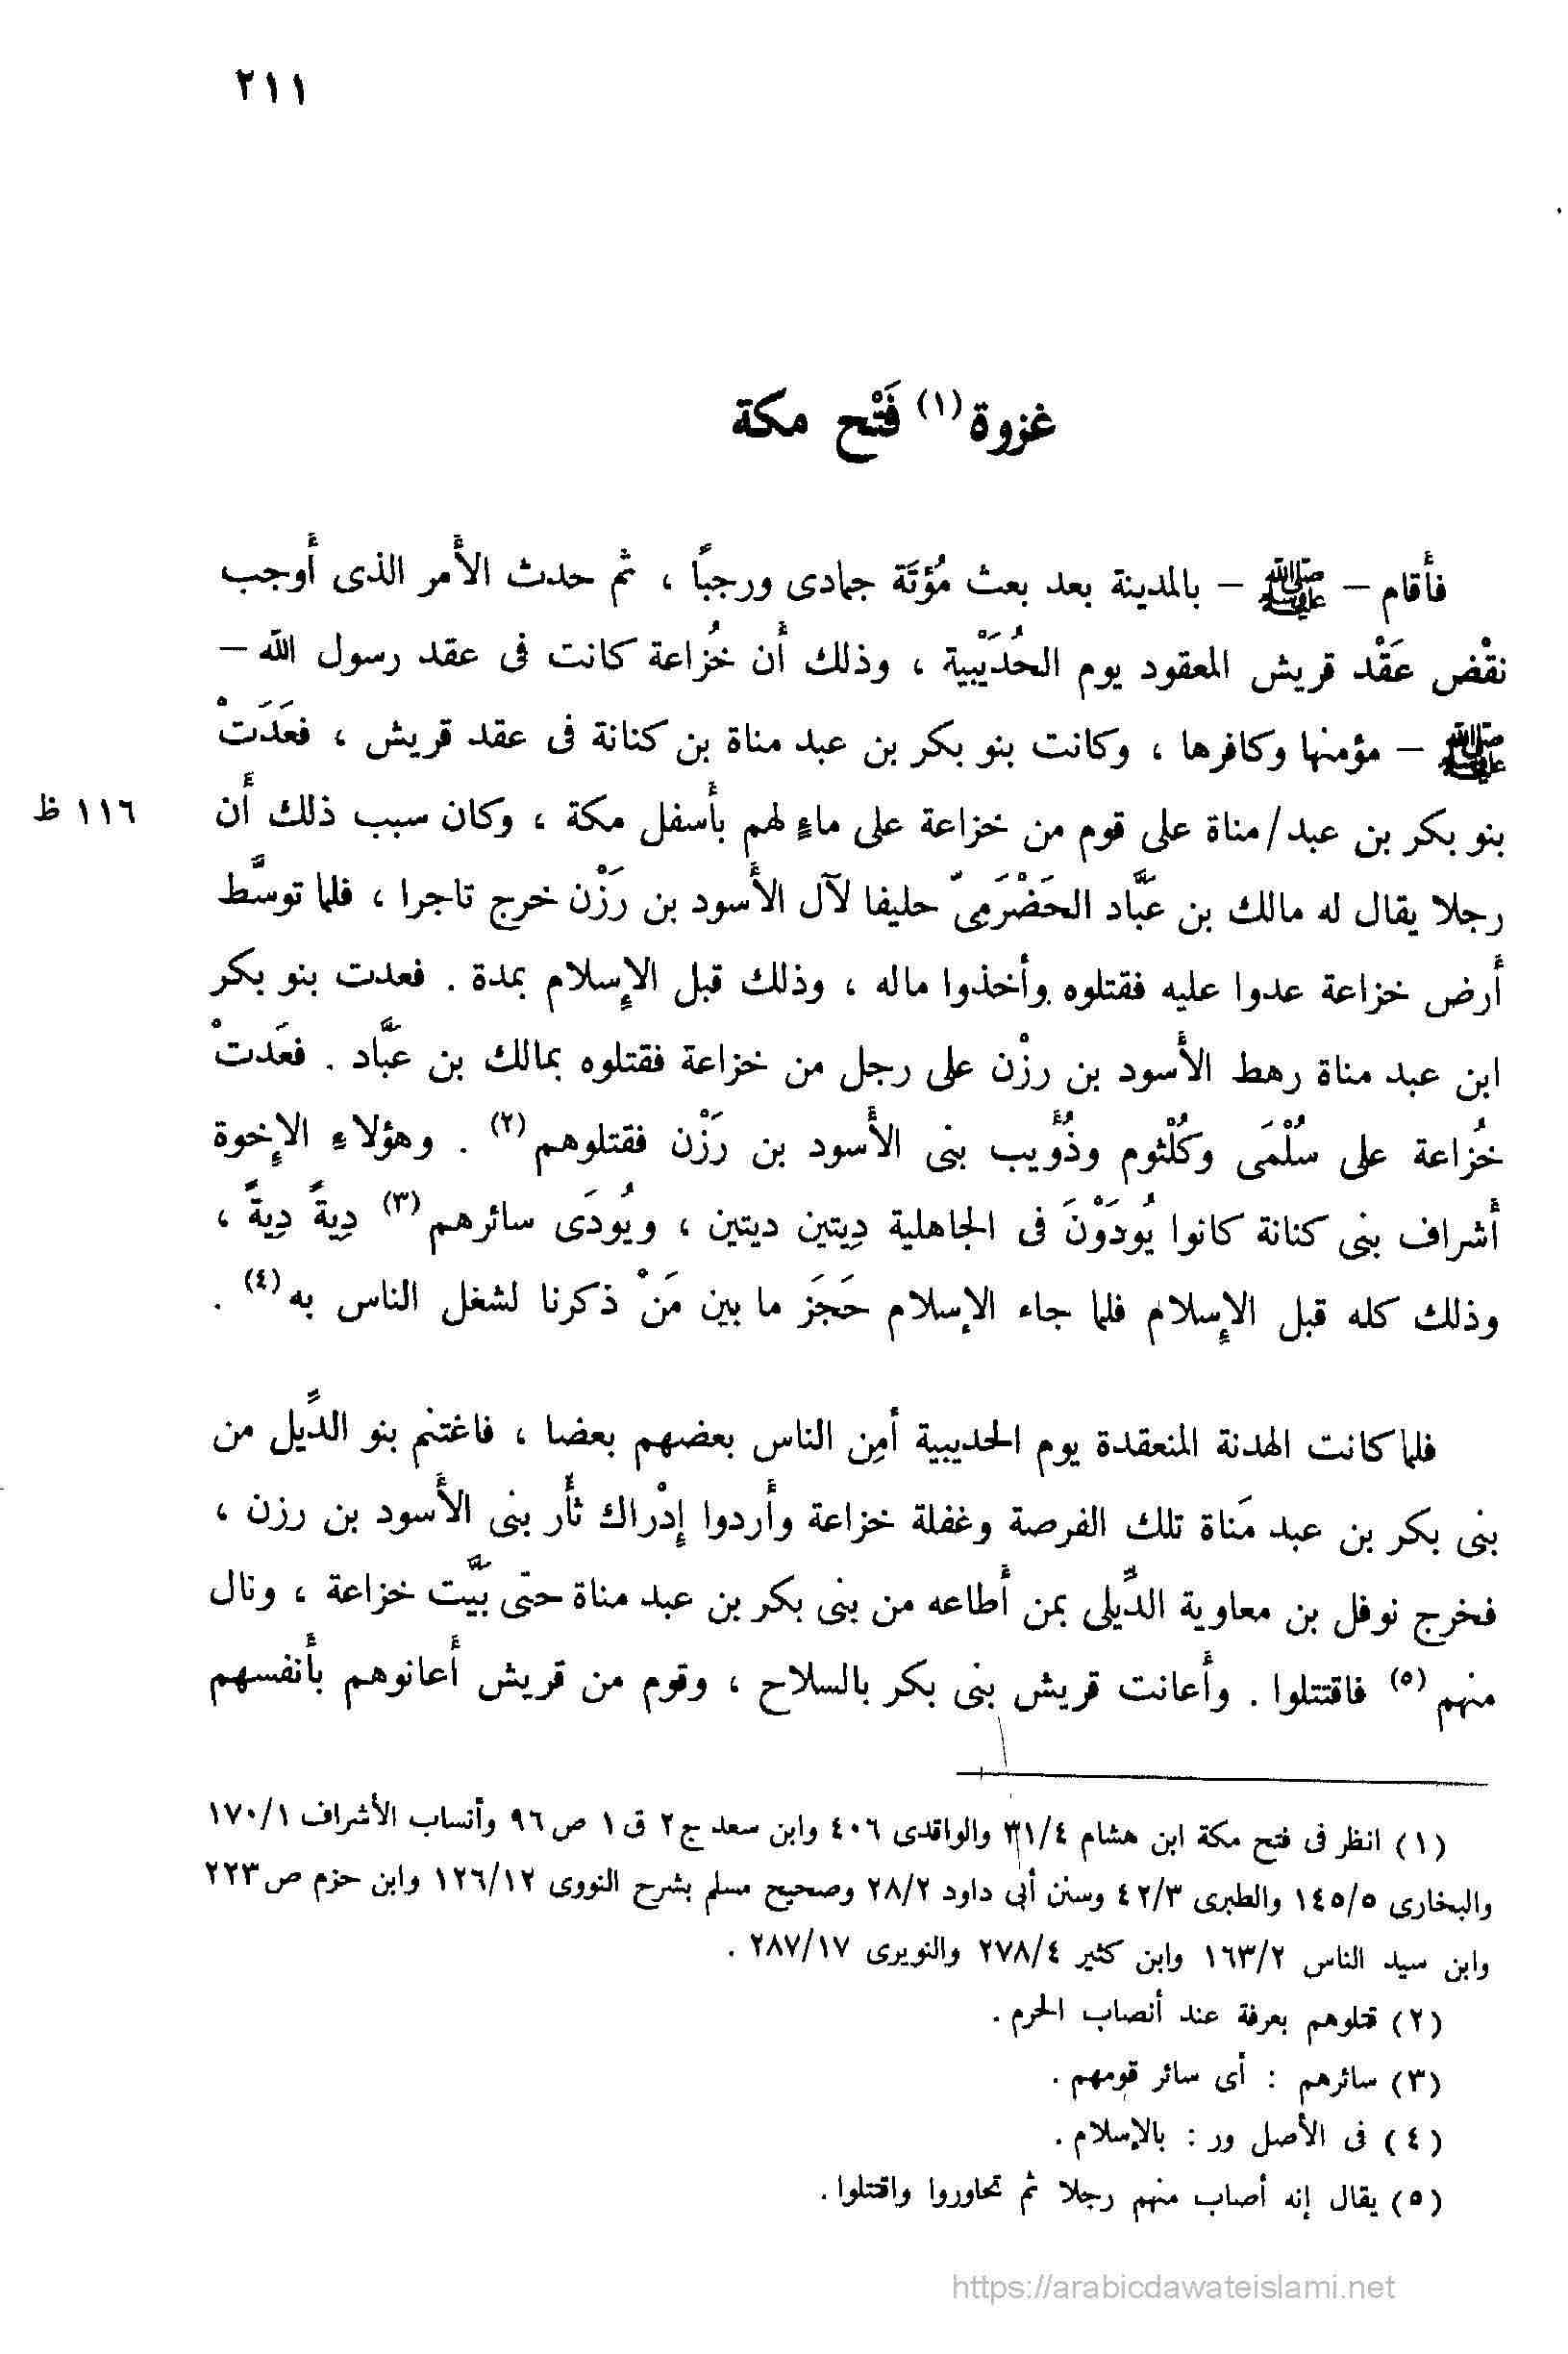 ٢١١
غزوة(١) فَتْح مكة
فأَقام – ﷺ – بالمدينة بعد بعث مُؤتَة جمادى ورجبًا ، ثم حدث الأَمر الذى أَوجب
نقْض عَقْد قريش المعقود يوم الحُدَيْبية ، وذلك أَن خُزاعة كانت فى عقد رسول الله –
ﷺ – مؤمنها وكافرها ، وكانت بنو بكر بن عبد مناة بن كنانة فى عقد قريش ، فعَدَتْ
بنو بكر بن عبد/مناة على قوم من خزاعة على ماءٍ لهم بأَسفل مكة ، وكان سبب ذلك أَن
١١٦ ظ
رجلا يقال له مالك بن عَبَّاد الحَضْرَمىّ حليفا لآل الأَسود بن رَزْن خرج تاجرا ، فلما توسَّط
أَرض خزاعة عدوا عليه فقتلوه وأَخذوا ماله ، وذلك قبل الإِسلام بمدة . فعدت بنو بكر
ابن عبد مناة رهط الأَسود بن رزْن على رجل من خزاعة فقتلوه بمالك بن عَبَّاد . فعَدتْ
خُزاعة على سُلْمَى وكُلْثوم وذُؤَيب بنى الأَسود بن رَزْن فقتلوهم(٢) . وهؤلاءِ الإِخوة
أَشراف بنى كنانة كانوا يُودَوْنَ فى الجاهلية دِيتين ديتين ، ويُودَى سائرهم(٣) دِيةً دِيةً ،
وذلك كله قبل الإِسلام فلما جاء الإسلام حَجَز ما بين مَنْ ذكرنا لشغل الناس به(٤) .
فلما كانت الهدنة المنعقدة يوم الحديبية أمِن الناس بعضهم بعضا ، فاغتنم بنو الدِّيل من
بنى بكر بن عبد مَناة تلك الفرصة وغفلة خزاعة وأَردوا إِدْراك ثأْر بنى الأَسود بن رزن ،
فخرج نوفل بن معاوية الدِّيلى بمن أَطاعه من بنى بكر بن عبد مناة حتى بَيَّت خزاعة ، ونال
منهم(٥) فاقتتلوا . وأَعانت قريش بنى بكر بالسلاح ، وقوم من قريش أَعانوهم بأَنفسهم
(١) انظر فى فتح مكة ابن هشام ٣١/٤ والواقدى ٤٠٦ وابن سعد ج٢ ق١ ص ٩٦ وأنساب الأشراف ١٧٠/١
والبخارى ١٤٥/٥ والطبرى ٤٢/٣ وسنن أبى داود ٢٨/٢ وصحيح مسلم بشرح النووى ١٢٦/١٢ وابن حزم ص ٢٢٣
وابن سيد الناس ١٦٣/٢ وابن كثير ٢٧٨/٤ والنويرى ٢٨٧/١٧ .
(٢) قتلوهم بعرفة عند أنصاب الحرم .
(٣) سائرهم : أى سائر قومهم .
(٤) فى الأصل ور : بالإسلام .
(٥) يقال إنه أصاب منهم رجلا ثم تحاوروا واقتتلوا .
https://arabicdawateislami.net